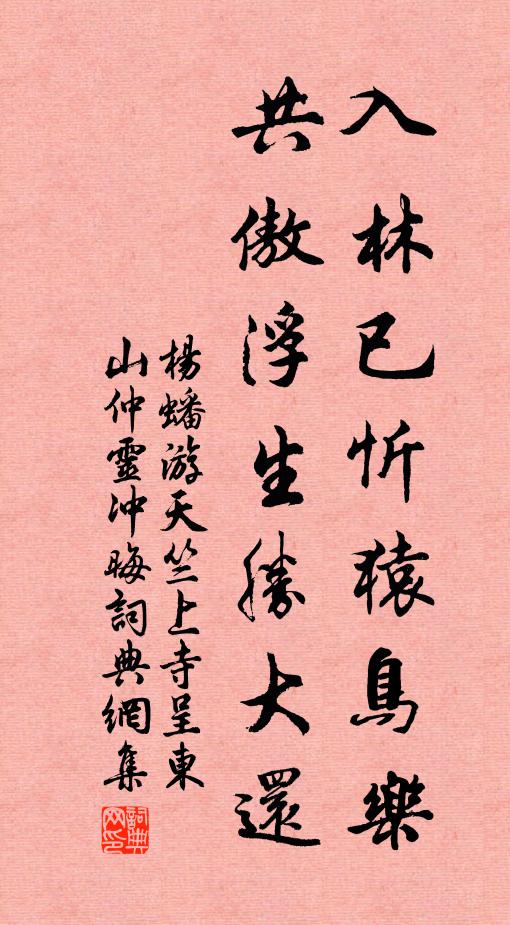 入林已忻猿鳥樂
共傲浮生勝大還
楊蟠游天竺上寺呈東
山仲靈冲晦詞典網集
詞典网印